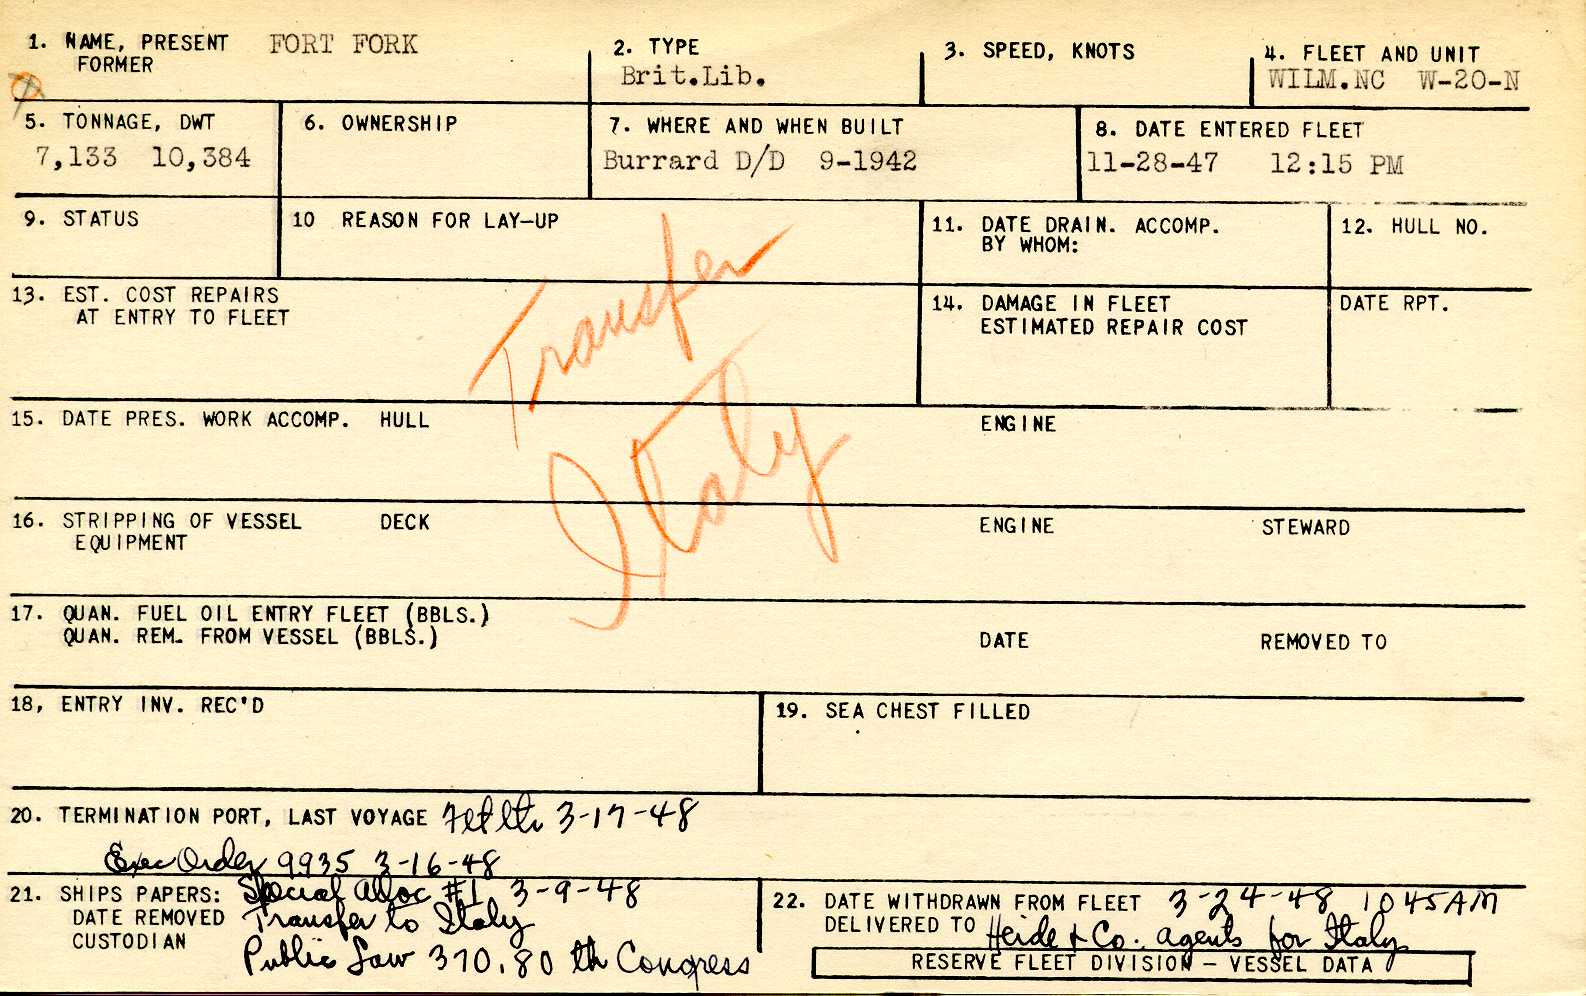 1. NAME, PRESENT FORT FORK
FORMER
2. TYPE
Brit.Lib.
3. SPEED, KNOTS
4. FLEET AND UNIT
WILM.NC W-20-N
5. TONNAGE, DWT
7,133 10,384
6. OWNERSHIP
7. WHERE AND WHEN BUILT
Burrard D/D 9-1942
8. DATE ENTERED FLEET
11-28-47 12:15 PM
9. STATUS
10 REASON FOR LAY-UP
11. DATE DRAIN. ACCOMP.
BY WHOM:
12. HULL NO.
13. EST. COST REPAIRS
AT ENTRY TO FLEET
Transfer
Italy
14. DAMAGE IN FLEET
ESTIMATED REPAIR COST
DATE RPT.
15. DATE PRES. WORK ACCOMP. HULL ENGINE
16. STRIPPING OF VESSEL DECK ENGINE STEWARD
EQUIPMENT
17. QUAN. FUEL OIL ENTRY FLEET (BBLS.)
QUAN. REM. FROM VESSEL (BBLS.) DATE REMOVED TO
18, ENTRY INV. REC'D
19. SEA CHEST FILLED
20. TERMINATION PORT, LAST VOYAGE 3-17-48
Exec Order 9935 3-16-48
21. SHIPS PAPERS: Special Alloc #1 3-9-48
DATE REMOVED Transfer to Italy
CUSTODIAN Public Law 370, 80th Congress
22. DATE WITHDRAWN FROM FLEET 3-24-48 1045AM
DELIVERED TO Heide & Co. agents for Italy
RESERVE FLEET DIVISION - VESSEL DATA